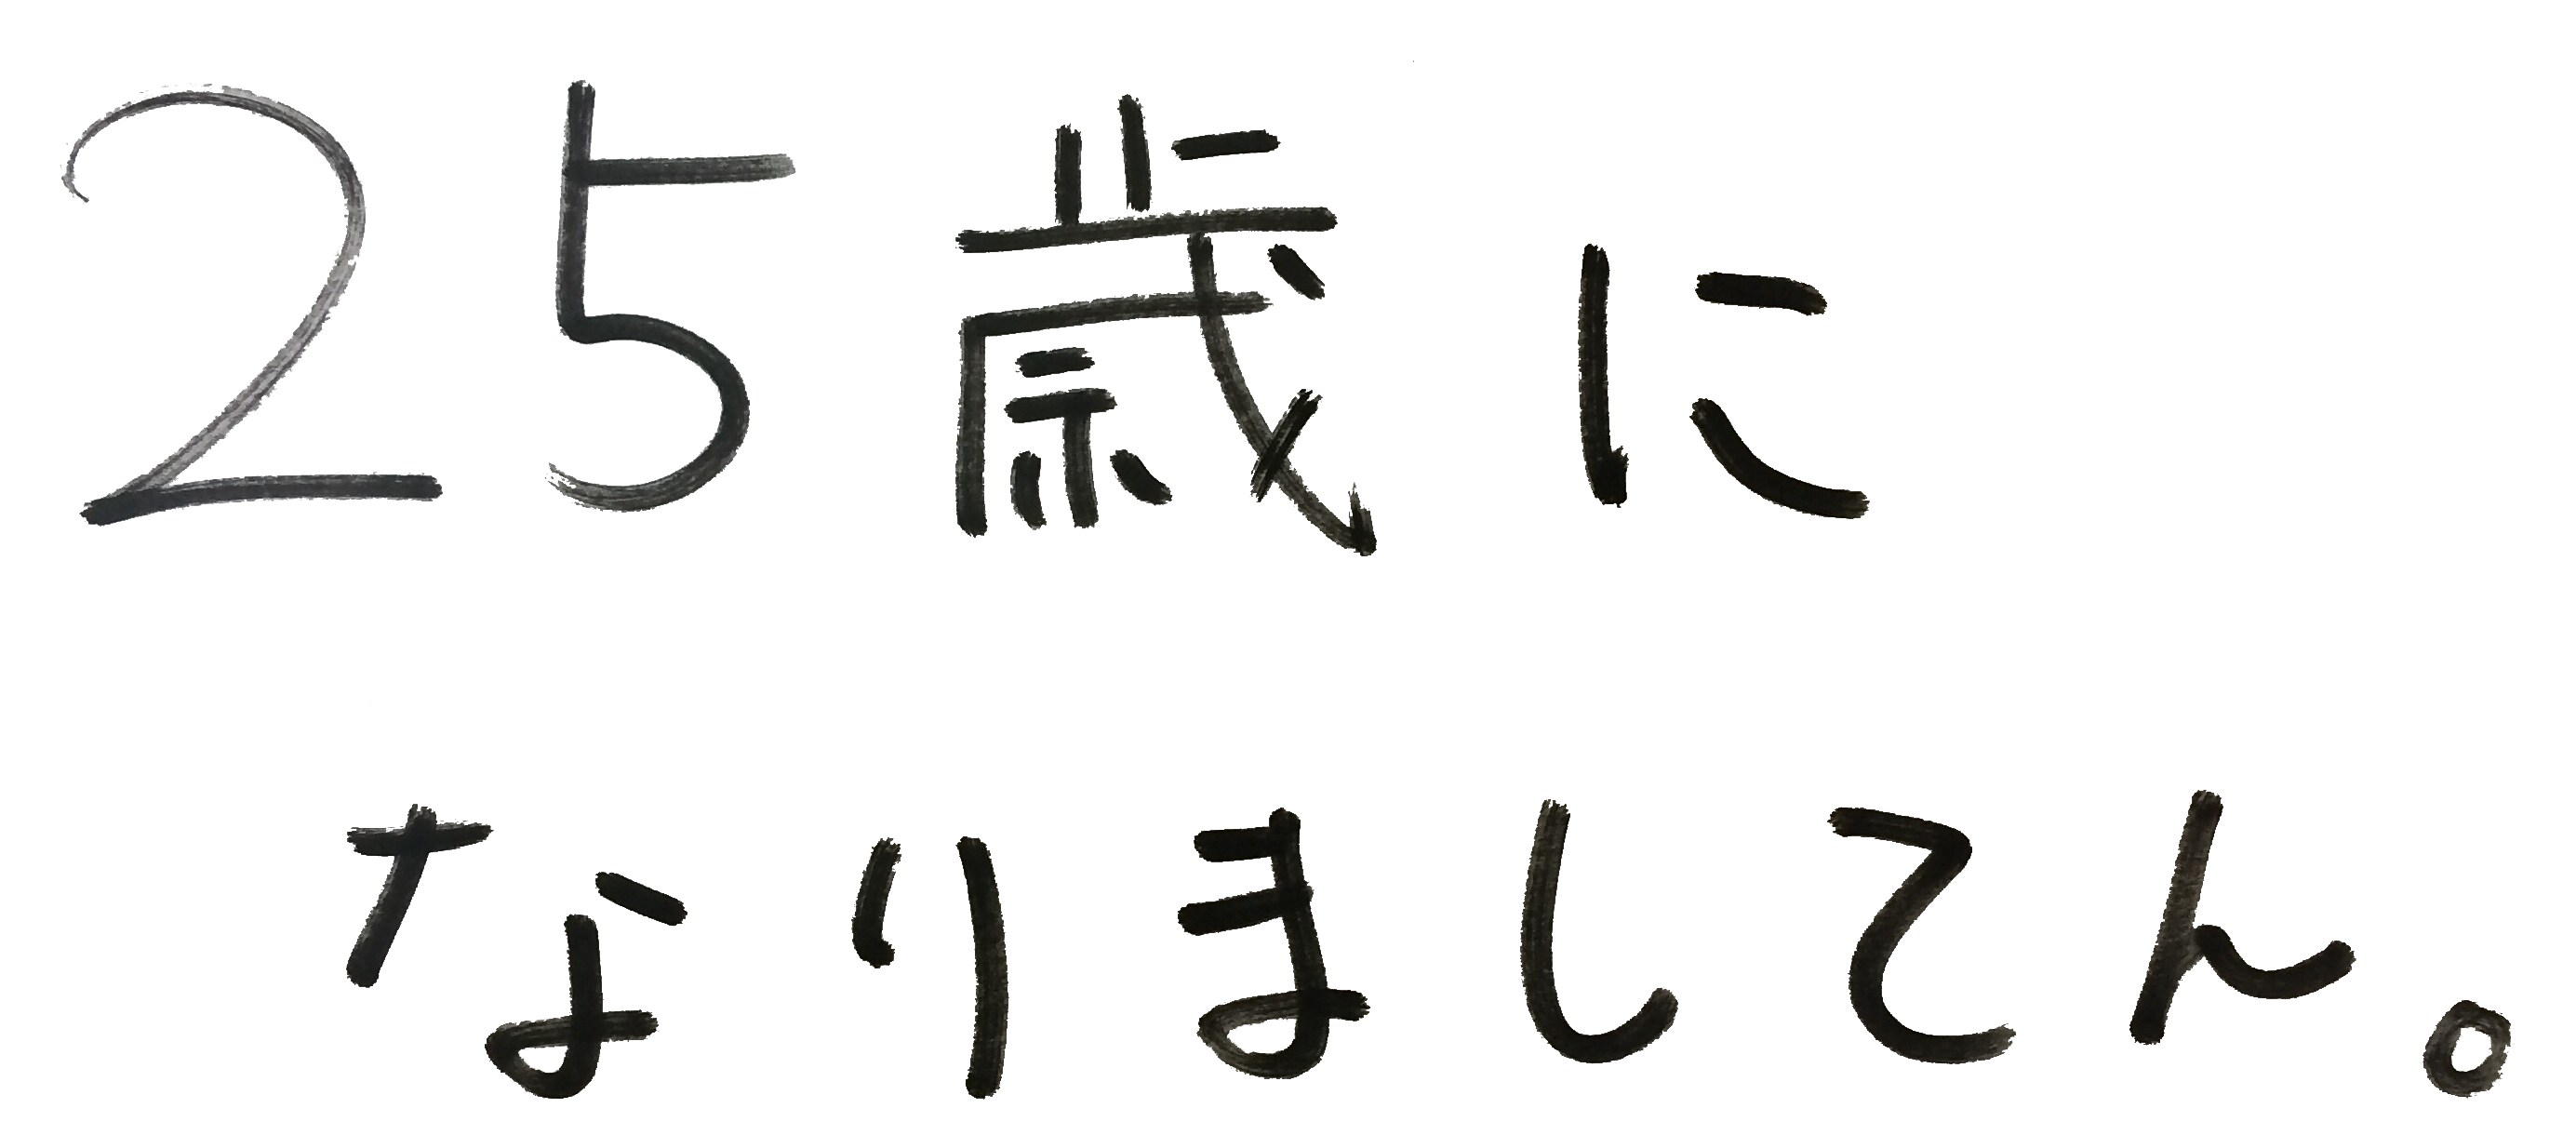 25歳に
なりましてん。